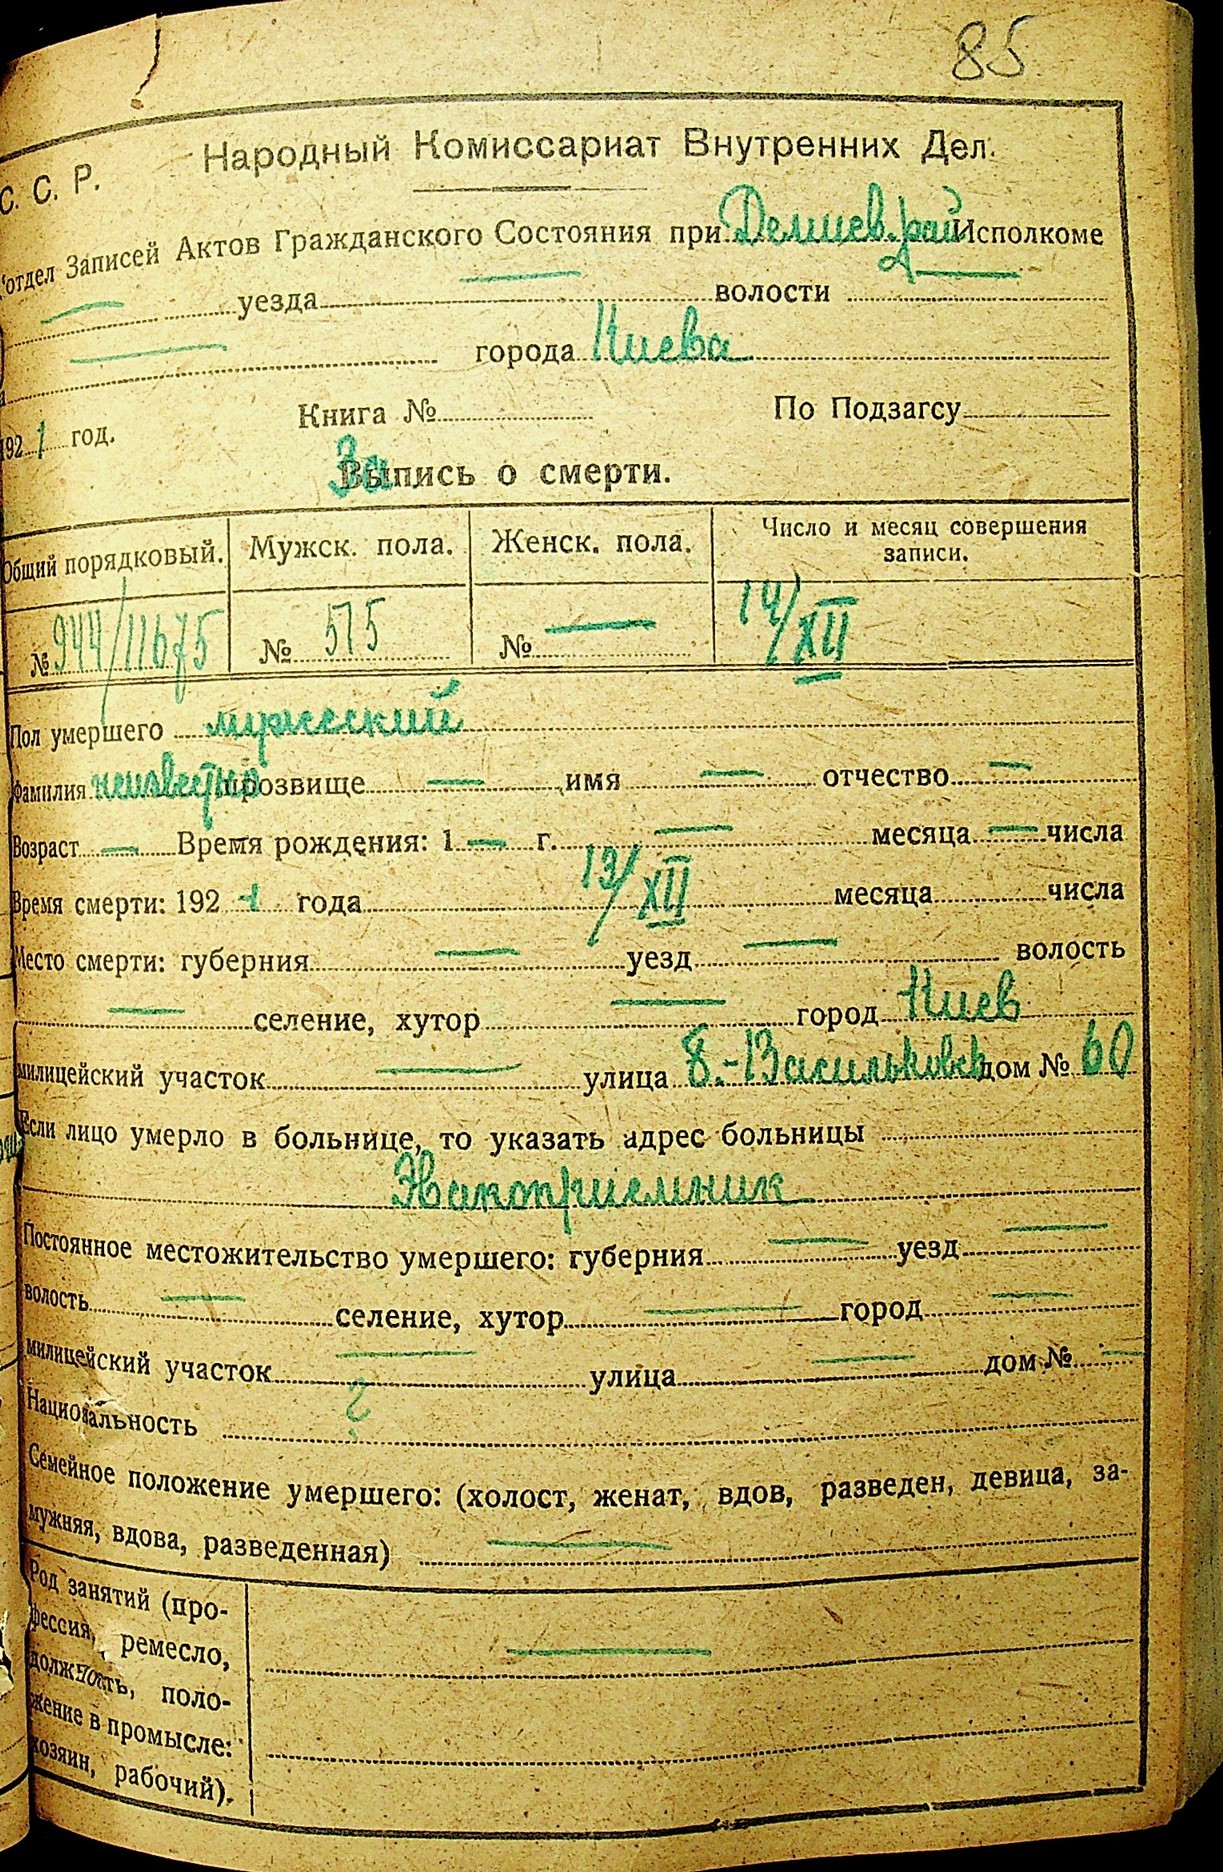 85
С. С. Р. Народный Комиссариат Внутренних Дел.
отдел Записей Актов Гражданского Состояния при Демиев. рай Исполкоме
— уезда — волости —
— города Киева
1921 год. Книга № По Подзагсу
Запись о смерти.
Общий порядковый. Мужск. пола. Женск. пола. Число и месяц совершения записи.
№ 944/11675 № 575 № — 14/XII
Пол умершего мужеский
Фамилия неизвестно прозвище — имя — отчество —
Возраст — Время рождения: 1 — г. — месяца — числа
Время смерти: 1921 года 13/XII месяца числа
Место смерти: губерния — уезд — волость
— селение, хутор — город Киев
милицейский участок — улица Б.-Васильковск дом № 60
Если лицо умерло в больнице, то указать адрес больницы
Эвакоприемник
Постоянное местожительство умершего: губерния — уезд —
волость — селение, хутор — город —
милицейский участок — улица — дом № —
Национальность ?
Семейное положение умершего: (холост, женат, вдов, разведен, девица, за-
мужняя, вдова, разведенная) —
Род занятий (про-
фессия, ремесло, —
должность, поло-
жение в промысле:
хозяин, рабочий).